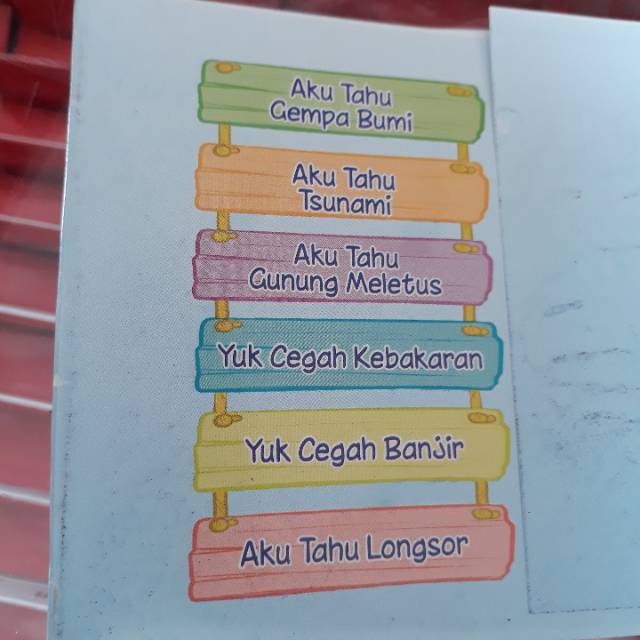 Aku Tahu
Gempa Bumi
Aku Tahu
Tsunami
Aku Tahu
Gunung Meletus
Yuk Cegah Kebakaran
Yuk Cegah Banjir
Aku Tahu Longsor